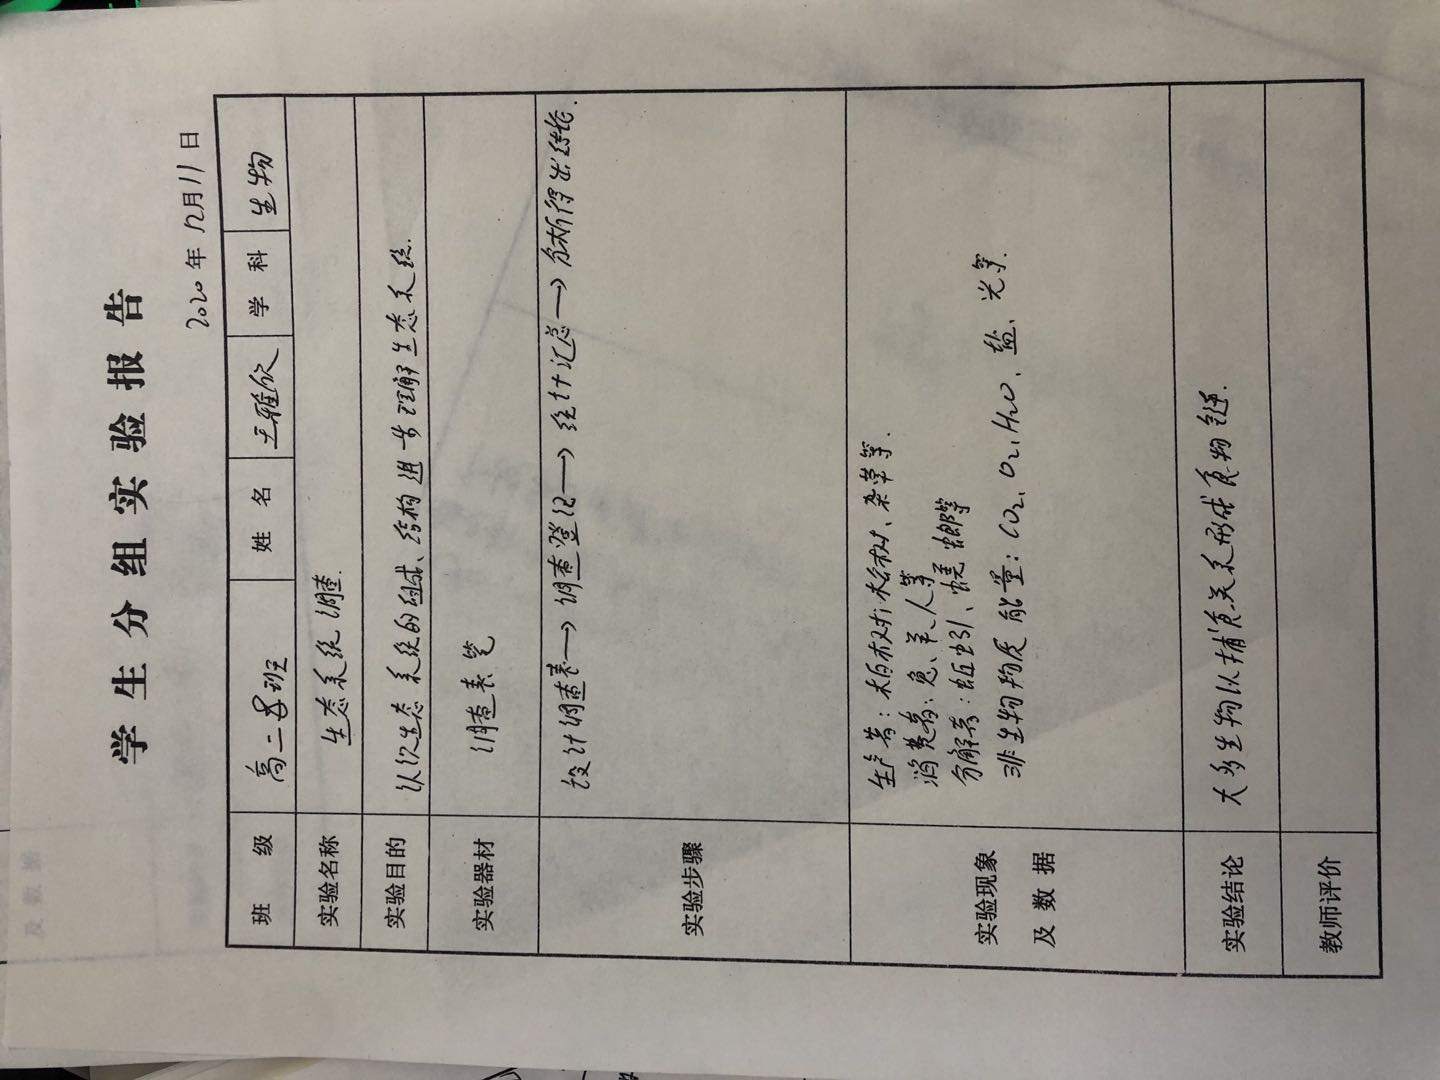 学生分组实验报告
2020年12月11日
班级 高二8班 姓名 王雅欣 学科 生物
实验名称 生态系统调查.
实验目的 认识生态系统的组成、结构进一步理解生态系统.
实验器材 调查表 笔
实验步骤 设计调查表→调查登记→统计汇总→分析得出结论.
实验现象
及数据
生产者:柏树、松树、杂草等.
消费者:兔、羊、人等
分解者:蚯蚓、蜣螂等
非生物物质能量:CO2、O2、H2O、盐、光等.
实验结论 大多生物以捕食关系形成食物链.
教师评价
及数据